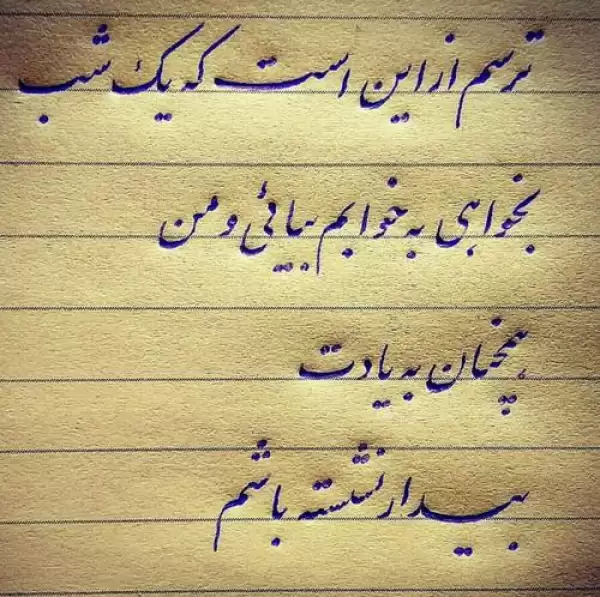 ترسم از این است که یک شب
بخواهی به خوابم بیائی و من
همچنان به یادت
بیدار نشسته باشم